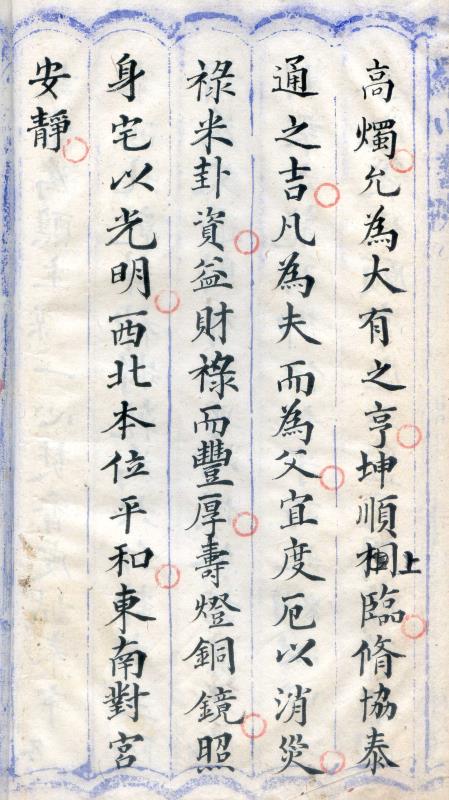 高燭允為大有之亨坤順相上臨脩協泰
通之吉凡為夫而為父宜度厄以消災
祿米卦資益財祿而豐厚壽燈銅鏡照
身宅以光明西北本位平和東南對宮
安靜